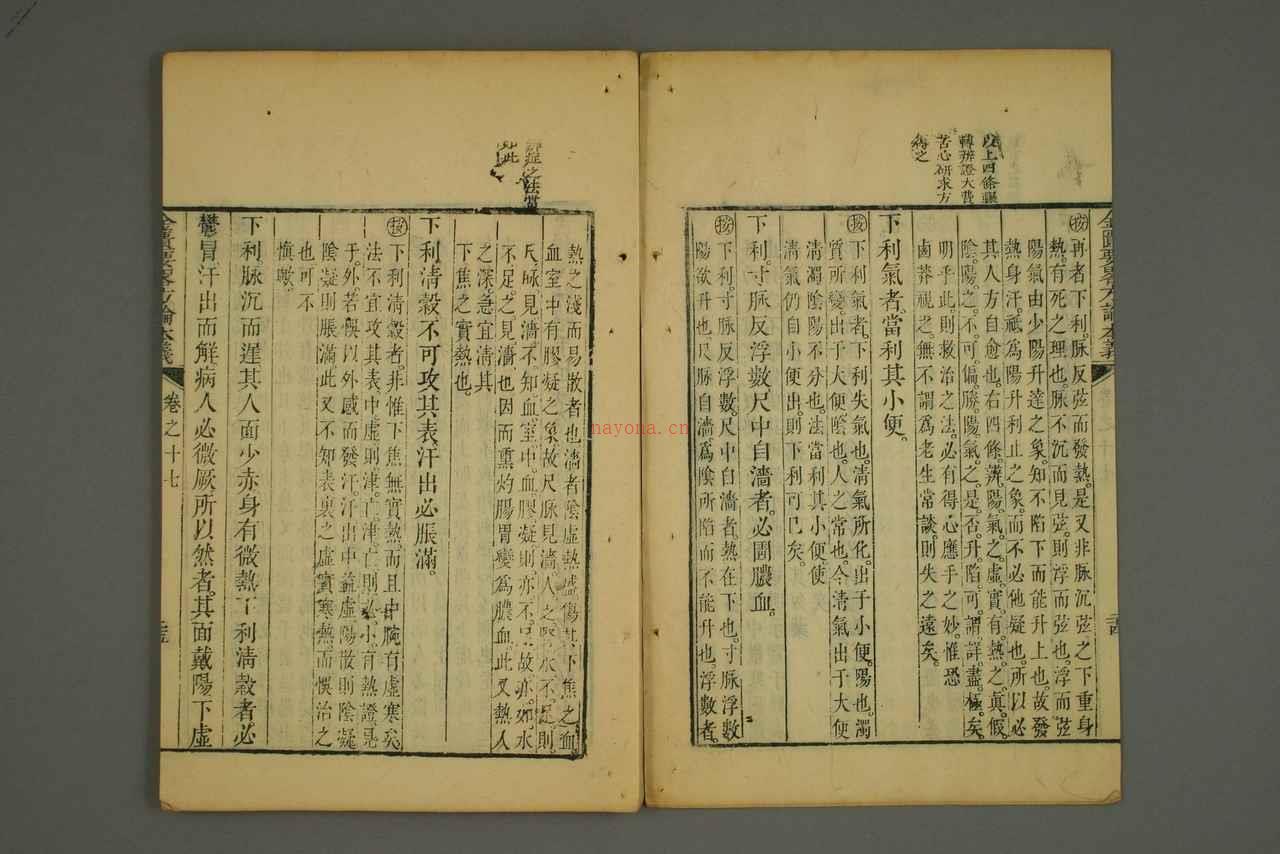 以上四條輾
轉辨證大費
苦心研求方
得之
㊣按再者下利脉反弦而發熱是又非脉沉弦之下重身
熱有死之理也脉不沉而見弦則浮而弦也浮而弦
陽氣由少陽升達之象知不陷下而能升上也故發
熱身汗祗為陽升利止之象而不必他疑也所以必
其人方自愈也右四條辨陽氣之虛實有熱之真假
陰陽之不可偏勝陽氣之是否升陷可謂詳盡極矣
明乎此則救治之法必有得心應手之妙惟恐
鹵莽視之無不謂為老生常談則失之遠矣
下利氣者當利其小便
按下利氣者下利失氣也清氣所化出于小便陽也濁
質所變出于大便陰也人之常也今清氣出于大便
清濁陰陽不分也法當利其小便使
清氣仍自小便出則下利可已矣
下利寸脉反浮數尺中自濇者必圊膿血
按下利寸脉反浮數尺中自濇者熱在下也寸脉浮數
陽欲升也尺脉自濇為陰所陷而不能升也浮數者
金匱要畧方論本義
二十四
熱之淺而易散者也濇者陰虛熱盛傷其下焦之血
血室中有膠凝之象故尺脉見濇人之腎水不足則
尺脉見濇不知血室中血膠凝則亦不足故亦如水
不足之見濇也因而熏灼腸胃變為膿血此又熱入
之深急宜清其
下焦之實熱也
下利清穀不可攻其表汗出必脹滿
按下利清穀者非惟下焦無實熱而且中脘有虛寒矣
法不宜攻其表中虛則津亡津亡則必小有熱證惡
于外若誤以外感而發汗汗出中益虛陽散則陰凝
陰凝則脹滿此又不知表裏之虛實寒熱而悞治之
也可不
慎歟
下利脉沉而遲其人面少赤身有微熱下利清穀者必
鬱冒汗出而解病人必微厥所以然者其面戴陽下虛
金匱要畧方論本義
卷之十七
二十五